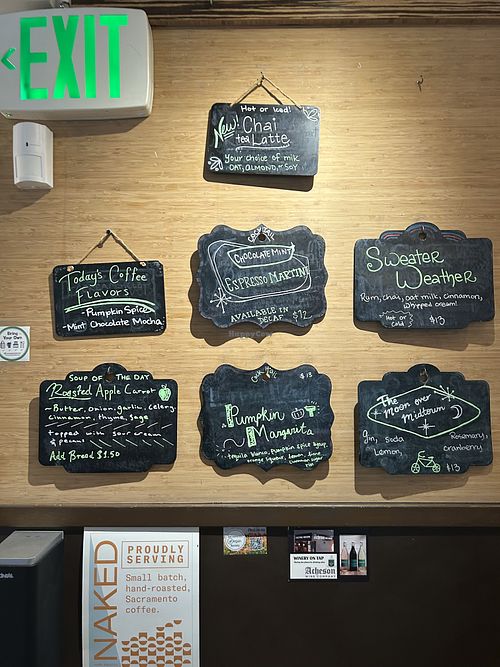 EXIT
Hot or Iced!
New! Chai
tea Latte
Your choice of milk
OAT, ALMOND, or SOY
Today's Coffee
Flavors
- Pumpkin Spice
- Mint Chocolate Mocha
COCKTAIL
CHOCOLATE MINT
ESPRESSO MARTINI
AVAILABLE IN
DECAF $12
Sweater
Weather
Rum, chai, oat milk, cinnamon,
whipped cream!
Hot or
Cold $13
Bring Your
Own
SOUP OF THE DAY
Roasted Apple Carrot
- Butter, onion, garlic, celery,
cinnamon, thyme, sage
topped with sour cream
& pecans
Add Bread $1.50
Cocktail $13
Pumpkin
Margarita
tequila blanco, pumpkin spice syrup,
orange liqueur, lemon, lime
cinnamon sugar
rim
The
Moon over
Midtown
Gin, Soda
Lemon,
Rosemary,
Cranberry
$13
NAKED
PROUDLY
SERVING
Small batch,
hand-roasted,
Sacramento
coffee.
WINERY ON TAP
Acheson
WINE COMPANY